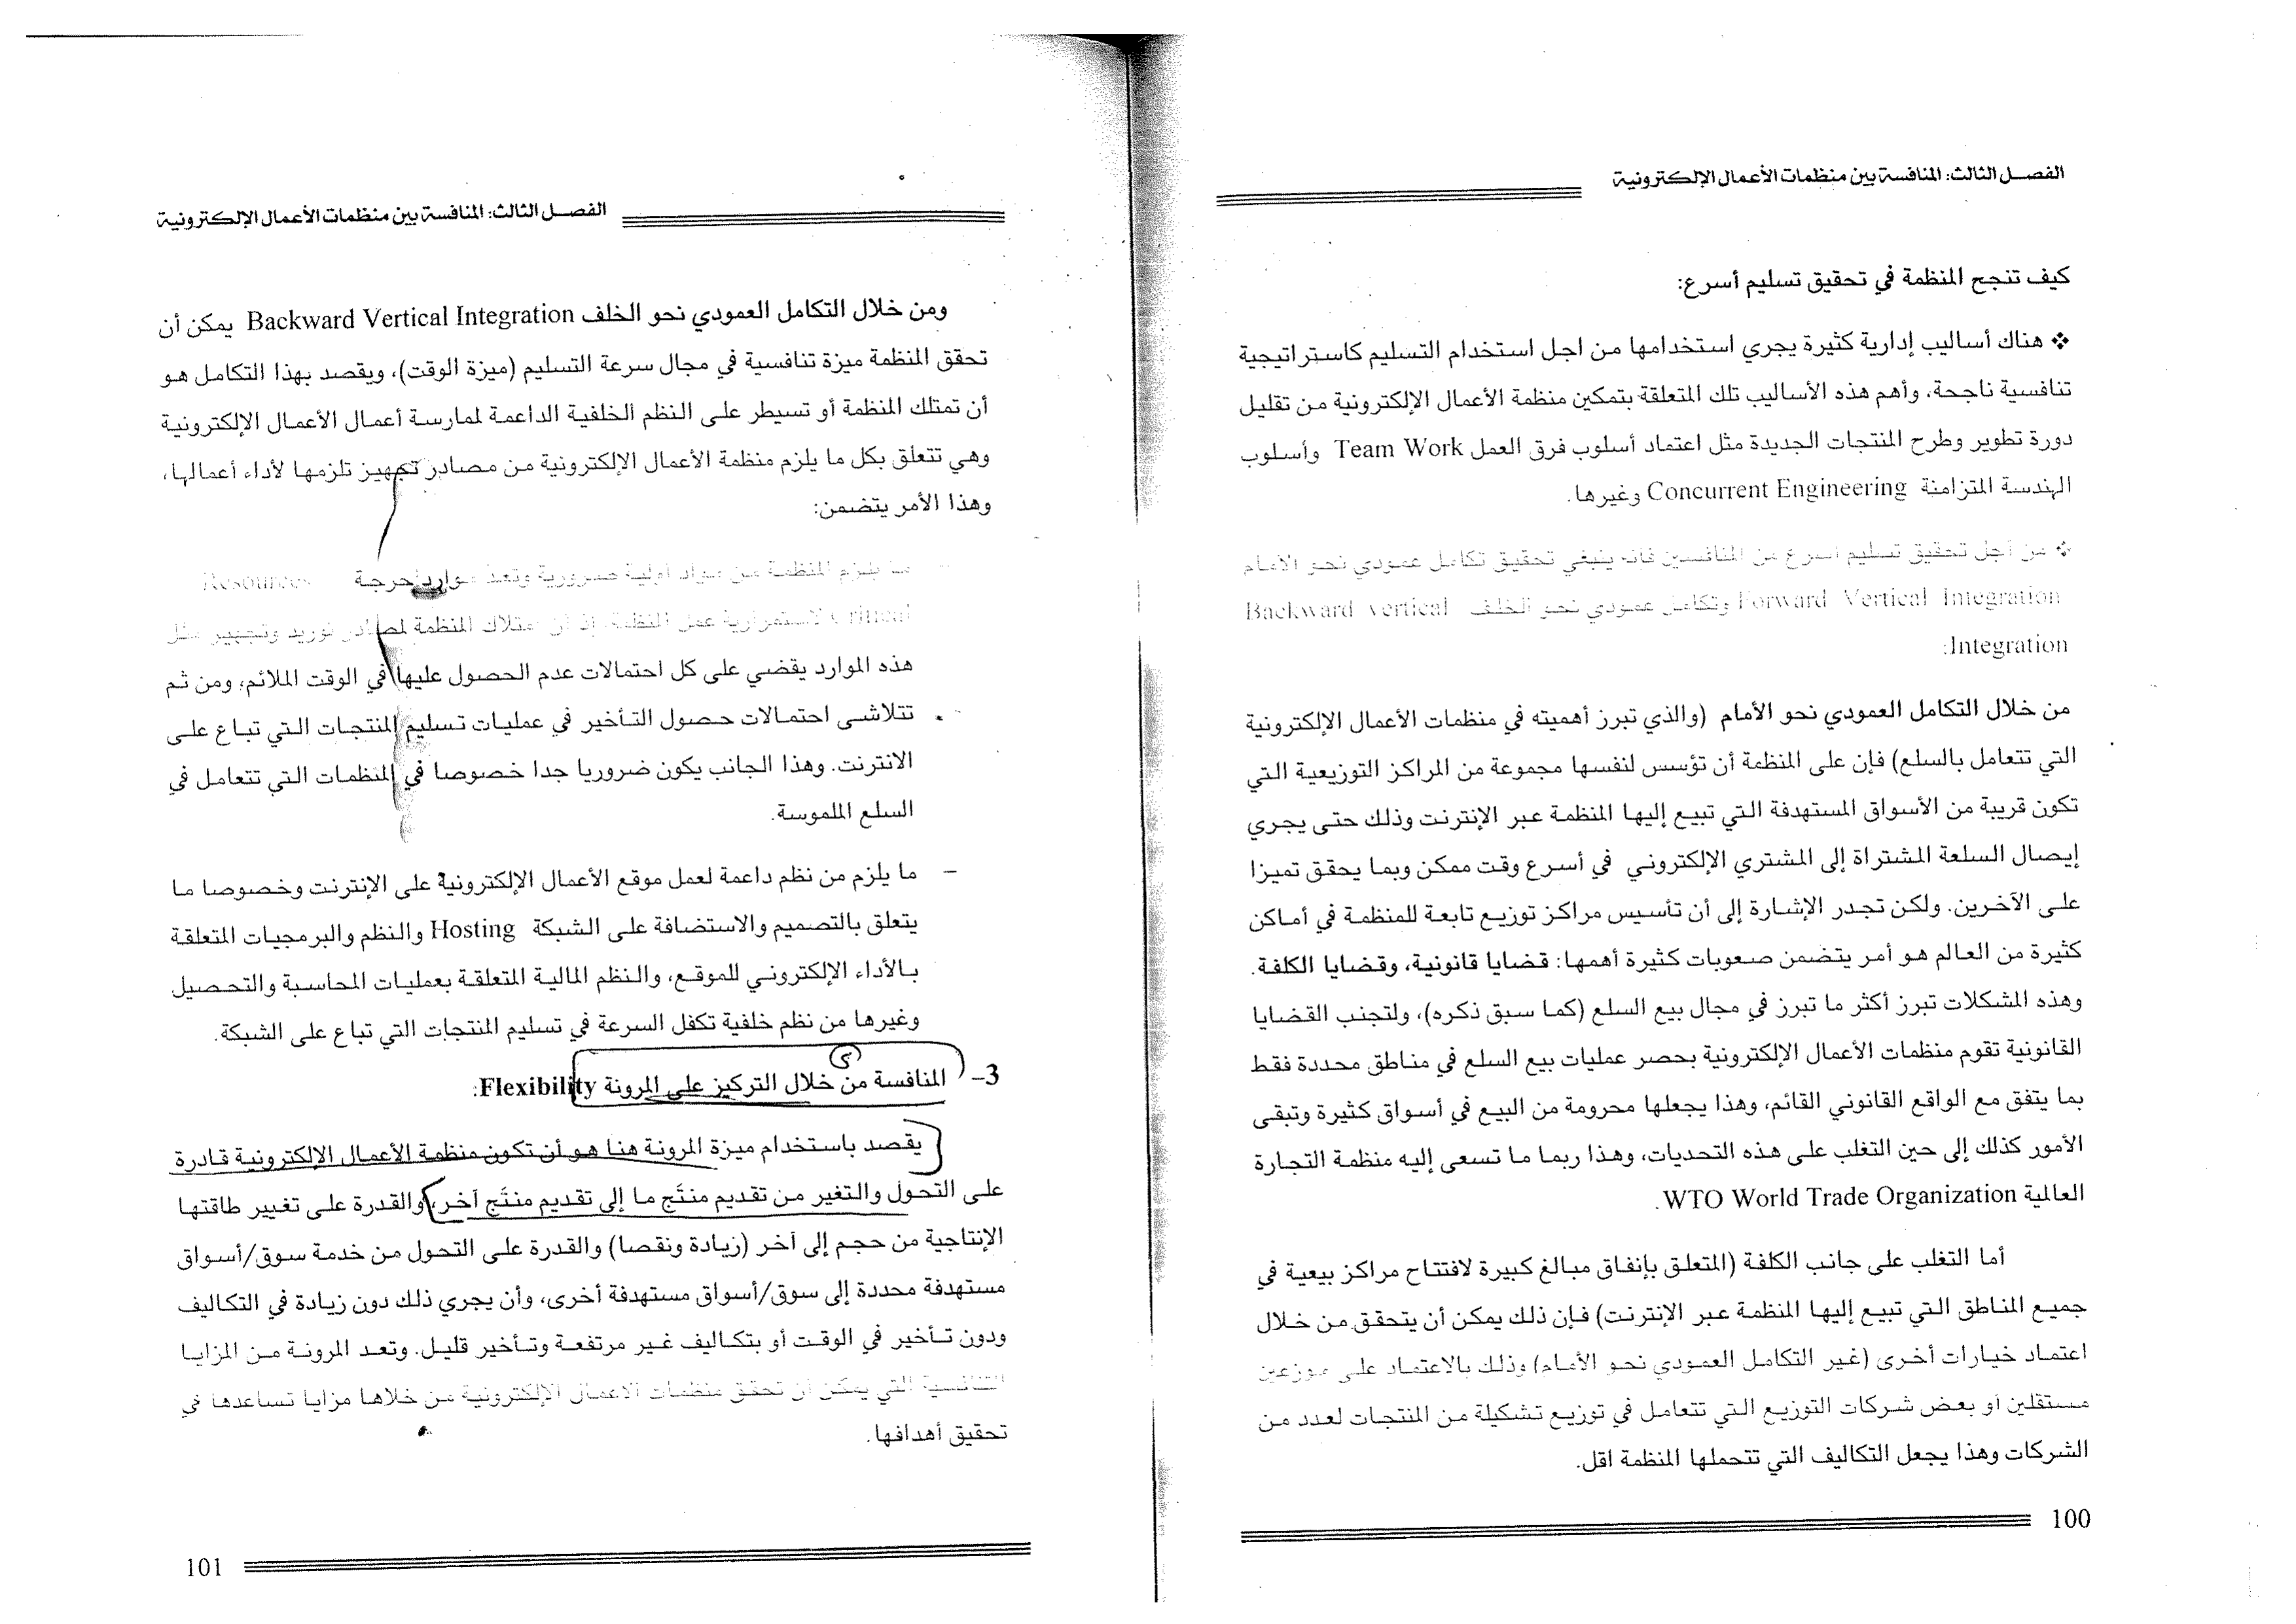 الفصل الثالث: المنافسة بين منظمات الأعمال الإلكترونية
كيف تنجح المنظمة في تحقيق تسليم أسرع:
❖ هناك أساليب إدارية كثيرة يجري استخدامها من اجل استخدام التسليم كاستراتيجية
تنافسية ناجحة، وأهم هذه الأساليب تلك المتعلقة بتمكين منظمة الأعمال الإلكترونية من تقليل
دورة تطوير وطرح المنتجات الجديدة مثل اعتماد أسلوب فرق العمل Team Work وأسلوب
الهندسة المتزامنة Concurrent Engineering وغيرها.
❖ من أجل تحقيق تسليم أسرع من المنافسين فانه ينبغي تحقيق تكامل عمودي نحو الأمام
Forward Vertical Integration وتكامل عمودي نحو الخلف Backward vertical
Integration:
من خلال التكامل العمودي نحو الأمام (والذي تبرز أهميته في منظمات الأعمال الإلكترونية
التي تتعامل بالسلع) فإن على المنظمة أن تؤسس لنفسها مجموعة من المراكز التوزيعية التي
تكون قريبة من الأسواق المستهدفة التي تبيع إليها المنظمة عبر الإنترنت وذلك حتى يجري
إيصال السلعة المشتراة إلى المشتري الإلكتروني في أسرع وقت ممكن وبما يحقق تميزا
على الآخرين. ولكن تجدر الإشارة إلى أن تأسيس مراكز توزيع تابعة للمنظمة في أماكن
كثيرة من العالم هو أمر يتضمن صعوبات كثيرة أهمها: قضايا قانونية، وقضايا الكلفة.
وهذه المشكلات تبرز أكثر ما تبرز في مجال بيع السلع (كما سبق ذكره)، ولتجنب القضايا
القانونية تقوم منظمات الأعمال الإلكترونية بحصر عمليات بيع السلع في مناطق محددة فقط
بما يتفق مع الواقع القانوني القائم، وهذا يجعلها محرومة من البيع في أسواق كثيرة وتبقى
الأمور كذلك إلى حين التغلب على هذه التحديات، وهذا ربما ما تسعى إليه منظمة التجارة
العالمية WTO World Trade Organization.
أما التغلب على جانب الكلفة (المتعلق بإنفاق مبالغ كبيرة لافتتاح مراكز بيعية في
جميع المناطق التي تبيع إليها المنظمة عبر الإنترنت) فإن ذلك يمكن أن يتحقق من خلال
اعتماد خيارات أخرى (غير التكامل العمودي نحو الأمام) وذلك بالاعتماد على موزعين
مستقلين أو بعض شركات التوزيع التي تتعامل في توزيع تشكيلة من المنتجات لعدد من
الشركات وهذا يجعل التكاليف التي تتحملها المنظمة اقل.
100
الفصل الثالث: المنافسة بين منظمات الأعمال الإلكترونية
ومن خلال التكامل العمودي نحو الخلف Backward Vertical Integration يمكن أن
تحقق المنظمة ميزة تنافسية في مجال سرعة التسليم (ميزة الوقت)، ويقصد بهذا التكامل هو
أن تمتلك المنظمة أو تسيطر على النظم الخلفية الداعمة لممارسة أعمال الأعمال الإلكترونية
وهي تتعلق بكل ما يلزم منظمة الأعمال الإلكترونية من مصادر تجهيز تلزمها لأداء أعمالها،
وهذا الأمر يتضمن:
– ما يلزم المنظمة من مواد أولية ضرورية وتعد موارد حرجة Resources
Critical لاستمرارية عمل المنظمة، إذ أن امتلاك المنظمة لمصادر توريد وتجهيز مثل
هذه الموارد يقضي على كل احتمالات عدم الحصول عليها في الوقت الملائم، ومن ثم
تتلاشى احتمالات حصول التأخير في عمليات تسليم المنتجات التي تباع على
الانترنت. وهذا الجانب يكون ضروريا جدا خصوصا في المنظمات التي تتعامل في
السلع الملموسة.
– ما يلزم من نظم داعمة لعمل موقع الأعمال الإلكترونية على الإنترنت وخصوصا ما
يتعلق بالتصميم والاستضافة على الشبكة Hosting والنظم والبرمجيات المتعلقة
بالأداء الإلكتروني للموقع، والنظم المالية المتعلقة بعمليات المحاسبة والتحصيل
وغيرها من نظم خلفية تكفل السرعة في تسليم المنتجات التي تباع على الشبكة.
3– المنافسة من خلال التركيز على المرونة Flexibility:
يقصد باستخدام ميزة المرونة هنا هو أن تكون منظمة الأعمال الإلكترونية قادرة
على التحول والتغير من تقديم منتَج ما إلى تقديم منتَج آخر، والقدرة على تغيير طاقتها
الإنتاجية من حجم إلى آخر (زيادة ونقصا) والقدرة على التحول من خدمة سوق/أسواق
مستهدفة محددة إلى سوق/أسواق مستهدفة أخرى، وأن يجري ذلك دون زيادة في التكاليف
ودون تأخير في الوقت أو بتكاليف غير مرتفعة وتأخير قليل. وتعد المرونة من المزايا
التنافسية التي يمكن أن تحقق منظمات الاعمال الإلكترونية من خلاها مزايا تساعدها في
تحقيق أهدافها.
101